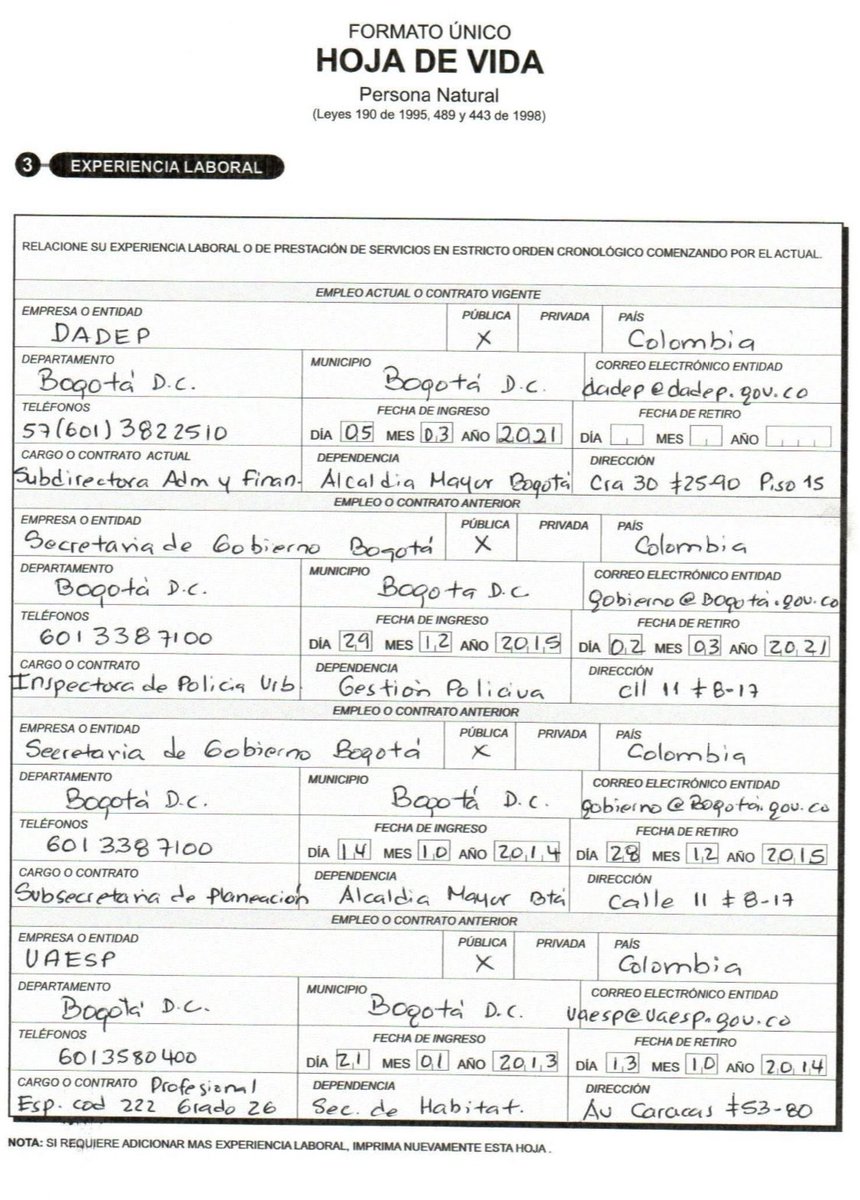 FORMATO ÚNICO
HOJA DE VIDA
Persona Natural
(Leyes 190 de 1995, 489 y 443 de 1998)
3 EXPERIENCIA LABORAL
RELACIONE SU EXPERIENCIA LABORAL O DE PRESTACIÓN DE SERVICIOS EN ESTRICTO ORDEN CRONOLÓGICO COMENZANDO POR EL ACTUAL.
EMPLEO ACTUAL O CONTRATO VIGENTE
EMPRESA O ENTIDAD PÚBLICA PRIVADA PAÍS
DADEP X Colombia
DEPARTAMENTO MUNICIPIO CORREO ELECTRÓNICO ENTIDAD
Bogotá D.C. Bogotá D.C. dadep@dadep.gov.co
TELÉFONOS FECHA DE INGRESO FECHA DE RETIRO
57(601)3822510 DÍA 05 MES 03 AÑO 2021 DÍA MES AÑO
CARGO O CONTRATO ACTUAL DEPENDENCIA DIRECCIÓN
Subdirectora Adm y Finan. Alcaldia Mayor Bogotá Cra 30 #25-90 Piso 15
EMPLEO O CONTRATO ANTERIOR
EMPRESA O ENTIDAD PÚBLICA PRIVADA PAÍS
Secretaria de Gobierno Bogotá X Colombia
DEPARTAMENTO MUNICIPIO CORREO ELECTRÓNICO ENTIDAD
Bogotá D.C. Bogota D.C gobierno@Bogotá.gov.co
TELÉFONOS FECHA DE INGRESO FECHA DE RETIRO
6013387100 DÍA 29 MES 12 AÑO 2015 DÍA 02 MES 03 AÑO 2021
CARGO O CONTRATO DEPENDENCIA DIRECCIÓN
Inspectora de Policia Urb. Gestión Policiva Cll 11 # 8-17
EMPLEO O CONTRATO ANTERIOR
EMPRESA O ENTIDAD PÚBLICA PRIVADA PAÍS
Secretaria de Gobierno Bogotá X Colombia
DEPARTAMENTO MUNICIPIO CORREO ELECTRÓNICO ENTIDAD
Bogotá D.C. Bogotá D.C. gobierno@Bogotá.gov.co
TELÉFONOS FECHA DE INGRESO FECHA DE RETIRO
6013387100 DÍA 14 MES 10 AÑO 2014 DÍA 28 MES 12 AÑO 2015
CARGO O CONTRATO DEPENDENCIA DIRECCIÓN
Subsecretaria de Planeación Alcaldia Mayor Btá Calle 11 # 8-17
EMPLEO O CONTRATO ANTERIOR
EMPRESA O ENTIDAD PÚBLICA PRIVADA PAÍS
UAESP X Colombia
DEPARTAMENTO MUNICIPIO CORREO ELECTRÓNICO ENTIDAD
Bogotá D.C. Bogotá D.C. uaesp@uaesp.gov.co
TELÉFONOS FECHA DE INGRESO FECHA DE RETIRO
6013580400 DÍA 21 MES 01 AÑO 2013 DÍA 13 MES 10 AÑO 2014
CARGO O CONTRATO Profesional DEPENDENCIA DIRECCIÓN
Esp. cod 222 Grado 26 Sec. de Habitat. Av Caracas #53-80
NOTA: SI REQUIERE ADICIONAR MAS EXPERIENCIA LABORAL, IMPRIMA NUEVAMENTE ESTA HOJA .